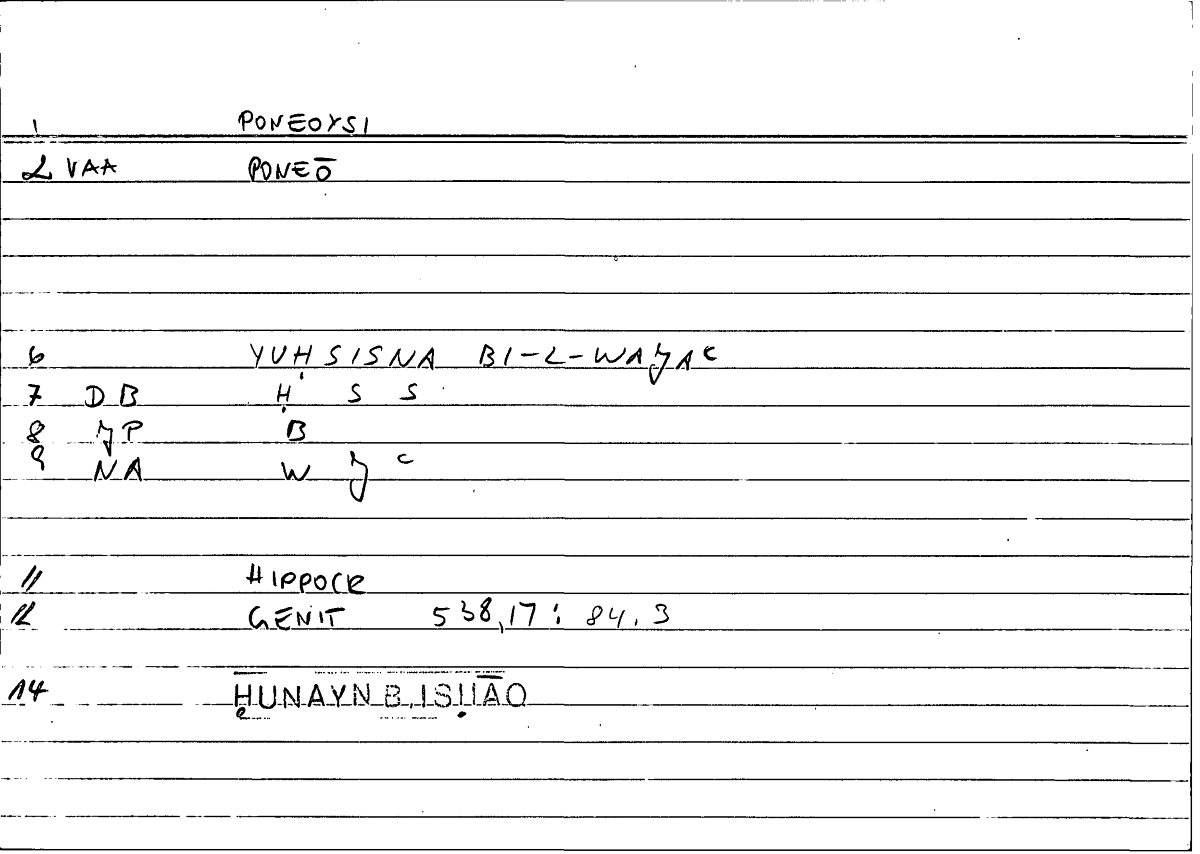 1 PONEOYSI
2 VAA PONEŌ
6 YUḤSISNA BI-L-WAJAʿ
7 DB Ḥ S S
8 JP B
9 NA W J ʿ
11 HIPPOCR
12 GENIT 538,17 : 84.3
14 ḤUNAYN B. ISḤĀQ